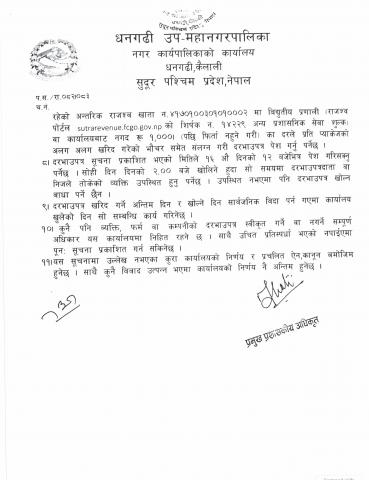 धनगढी उप-महानगरपालिका
नगर कार्यपालिकाको कार्यालय
धनगढी,कैलाली
सुदूर पश्चिम प्रदेश,नेपाल
प.स./रा.०८२/०८३
च.नं.
रहेको अन्तरिक राजश्व खाता न.४१७०१००३०१०१०००२ मा विद्युतीय प्रणाली (राजश्व
पोर्टल sutrarevenue.fcgo.gov.np को शिर्षक नं. १४२२९ अन्य प्रशासनिक सेवा शुल्क)
वा कार्यालयबाट नगद रू १,०००। (पछि फिर्ता नहुने गरी) का दरले प्रति प्याकेजको
अलग अलग खरिद गरेको भौचर समेत संलग्न गरी दरभाउपत्र पेश गर्नु पर्नेछ ।
८। दरभाउपत्र सूचना प्रकाशित भएको मितिले १६ औं दिनको १२ बजेभित्र पेश गरिसक्नु
पर्नेछ । सोही दिन दिनको २.०० बजे खोलिने हुदा सो समयमा दरभाउपत्रदाता वा
निजले तोकेको व्यक्ति उपस्थित हुनु पर्नेछ । उपस्थित नभएमा पनि दरभाउपत्र खोल्न
बाधा पर्ने छैन ।
९। दरभाउपत्र खरिद गर्ने अन्तिम दिन र खोल्ने दिन सार्वजनिक विदा पर्न गएमा कार्यालय
खुलेको दिन सो सम्बन्धि कार्य गरिनेछ ।
१०। कुनै पनि व्यक्ति, फर्म वा कम्पनीको दरभाउपत्र स्वीकृत गर्ने वा नगर्ने सम्पूर्ण
अधिकार यस कार्यालयमा निहित रहने छ । साथै उचित प्रतिस्पर्धा भएको नपाईएमा
पून: सूचना प्रकाशित गर्न सकिनेछ ।
११। यस सूचनामा उल्लेख नभएका कुरा कार्यालयको निर्णय र प्रचलित ऐन,कानून वमोजिम
हुनेछ । साथै कुनै विवाद उत्पन्न भएमा कार्यालयको निर्णय नै अन्तिम हुनेछ ।
प्रमुख प्रशासकीय अधिकृत